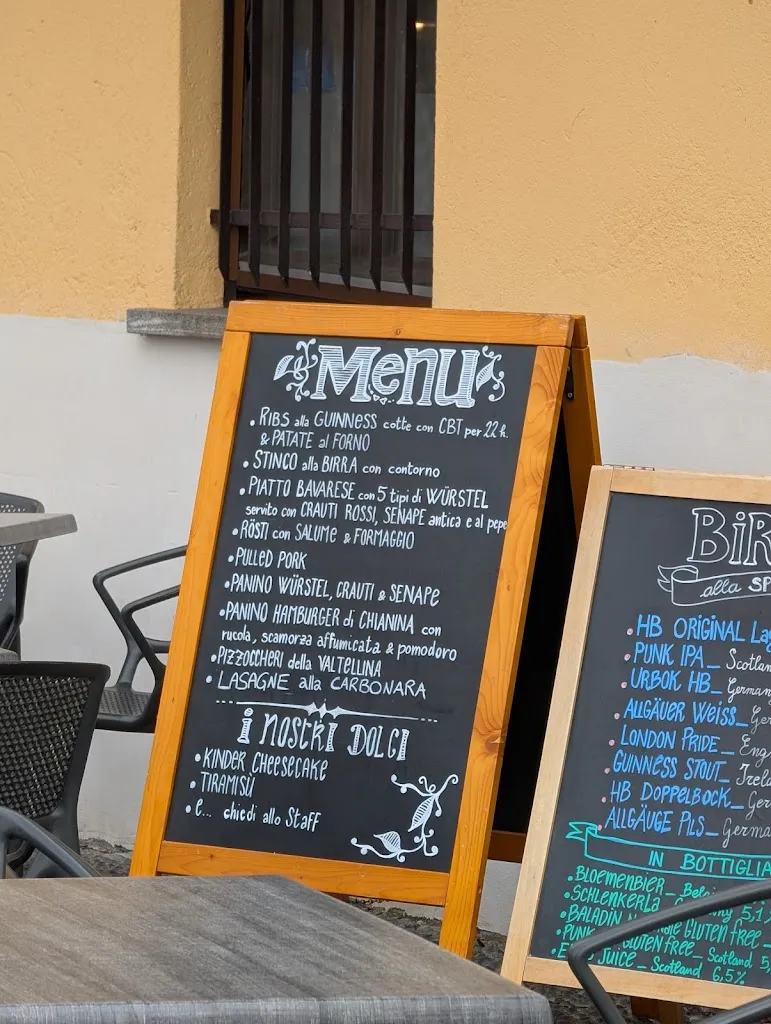 Menu
• RIBS alla GUINNESS cotte con CBT per 22 h.
& PATATE al FORNO
• STINCO alla BIRRA con contorno
• PIATTO BAVARESE con 5 tipi di WÜRSTEL
servito con CRAUTI ROSSI, SENAPE antica e al pepe
• RÖSTI con SALUME & FORMAGGIO
• PULLED PORK
• PANINO WÜRSTEL, CRAUTI & SENAPE
• PANINO HAMBURGER di CHIANINA con
rucola, scamorza affumicata & pomodoro
• PIZZOCCHERI della VALTELLINA
• LASAGNE alla CARBONARA
i NOSTRI DOLCI
• KINDER CHEESECAKE
• TIRAMISÙ
• E... chiedi allo Staff
BIR
alla SP
• HB ORIGINAL Lag
• PUNK IPA_ Scotlan
• URBOK HB_ German
ALLGÄUER WEISS_ Ger
• LONDON PRIDE_ Eng
GUINNESS STOUT_ Irela
• HB DOPPELBOCK_ Ger
• ALLGÄUGE PILS_ Germa
IN BOTTIGLIA
• BLOEMENBIER_ Belg
• SCHLENKERLA 5,1
• BALADIN GLUTEN FREE
• PUNK GLUTEN FREE_ Scotland 5,
JUICE_ Scotland 6,5%